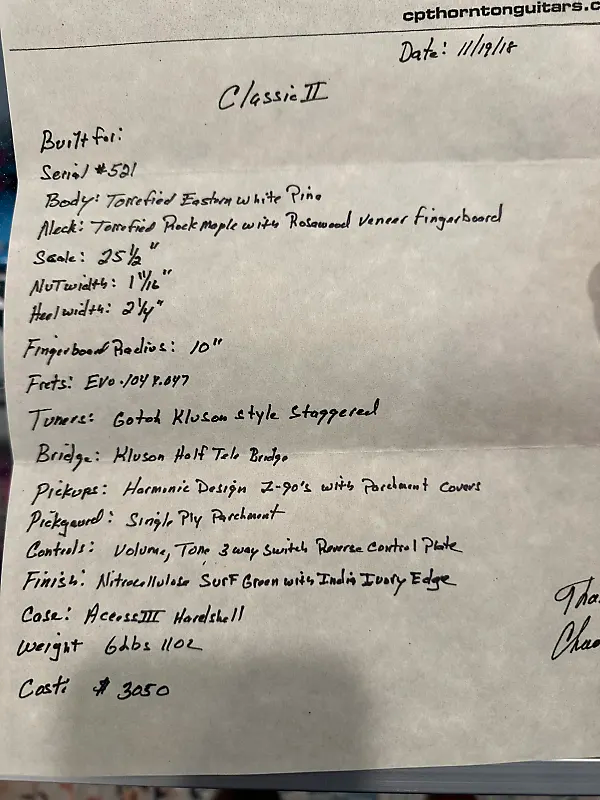 cpthorntonguitars.c
Date: 11/19/18
Classic II
Built for:
Serial #521
Body: Torrefied Eastern White Pine
Neck: Torrefied Rock Maple with Rosewood Veneer Fingerboard
Scale: 25 1/2"
Nut width: 1 11/16"
Heel width: 2 1/4"
Fingerboard Radius: 10"
Frets: Evo .104 x .047
Tuners: Gotoh Kluson Style Staggered
Bridge: Kluson Half Tele Bridge
Pickups: Harmonic Design Z-90's with Parchment Covers
Pickgaurd: Single Ply Parchment
Controls: Volume, Tone 3 way Switch Reverse Control Plate
Finish: Nitrocellulose Surf Green with India Ivory Edge
Tha
Case: Access III Hardshell
Chu
Weight 6Lbs 11oz
Cost: $ 3050